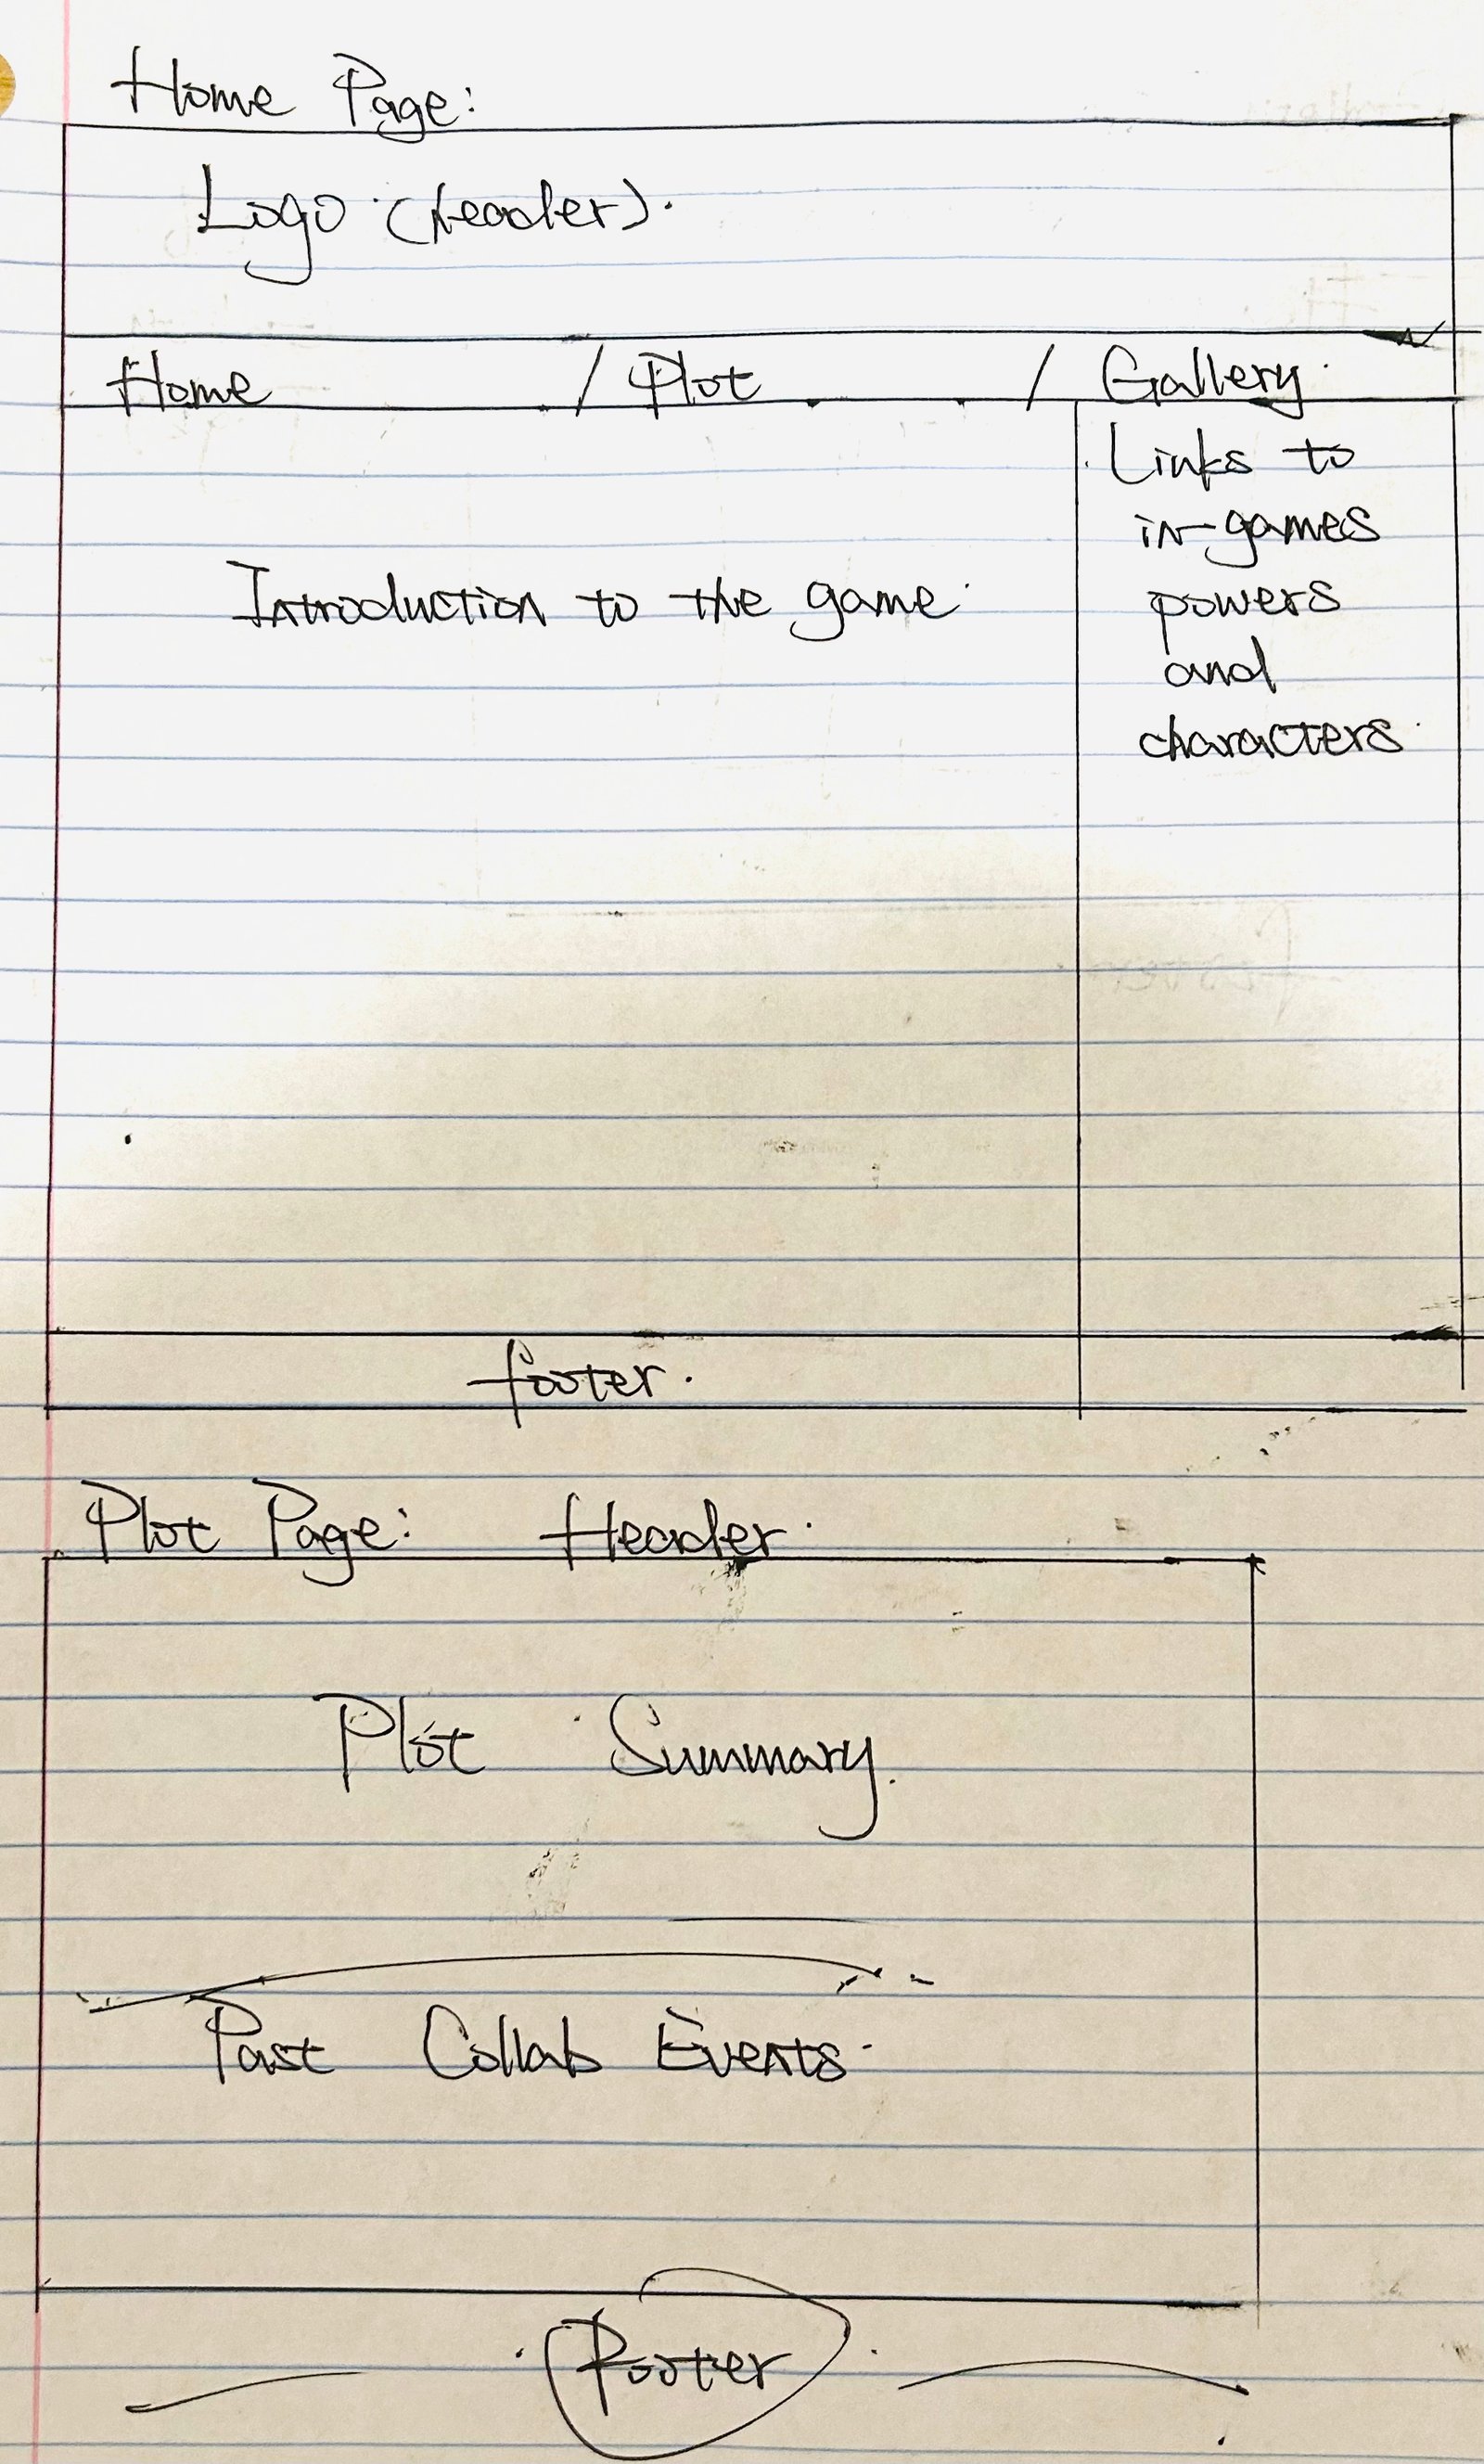 Home Page:
Logo (Header).
Home / Plot / Gallery
Introduction to the game
Links to
in-games
powers
and
characters
footer.
Plot Page: Header
Plot Summary.
Past Collab Events
Footer